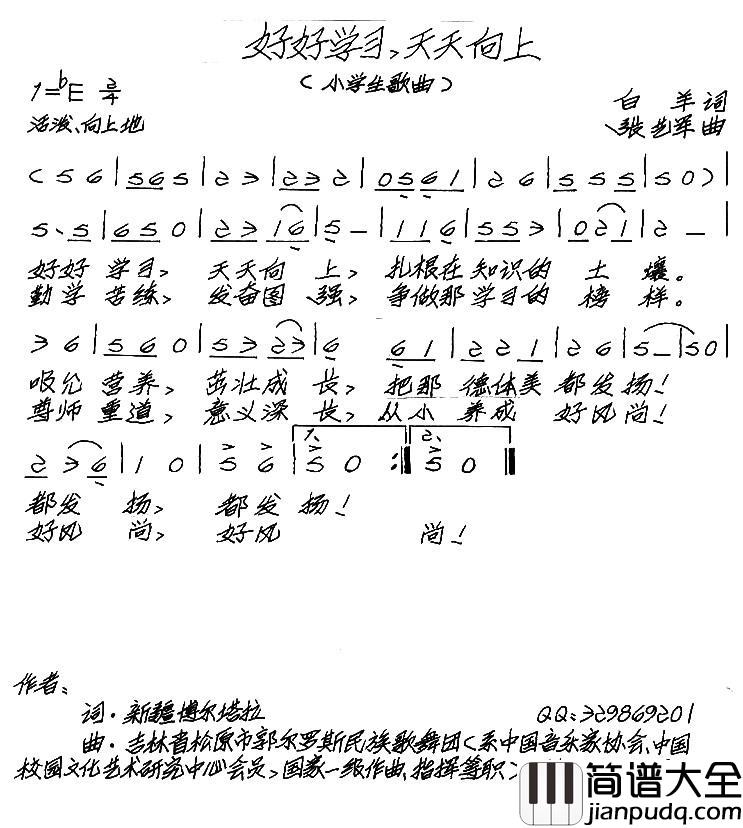 好好学习,天天向上
(小学生歌曲)
1=bE 2/4
白羊词
活泼、向上地
张艺军曲
(5 6 | 5 6 5 | 2 3 | 2 3 2 | 0 5 6 1 | 2 6 | 5 5 5 | 5 0) |
5、5 | 6 5 0 | 2 3 1 6 | 5 — | 1 1 6 | 5 5 3 | 0 2 1 | 2 — |
好好 学习, 天天向 上, 扎根在知识的 土 壤。
勤学 苦练, 发奋图 强, 争做那学习的 榜 样。
3 6 | 5 6 0 | 5 3 2 3 | 6 6 1 | 2 2 1 | 2 6 | 5 — | 5 0 |
吸允 营养, 茁壮成 长, 把那 德体美 都发扬!
尊师 重道, 意义深 长, 从小 养成 好风尚!
1、 2、
2 3 6 | 1 0 | 5 6 | 5 0 :| 5 0 ‖
都发 扬, 都发扬!
好风 尚, 好风 尚!
作者:
词·新疆博尔塔拉 QQ:329869201
曲·吉林省松原市郭尔罗斯民族歌舞团(系中国音乐家协会、中国
校园文化艺术研究中心会员,国家一级作曲、指挥等职)
简谱大全
jianpudq.com